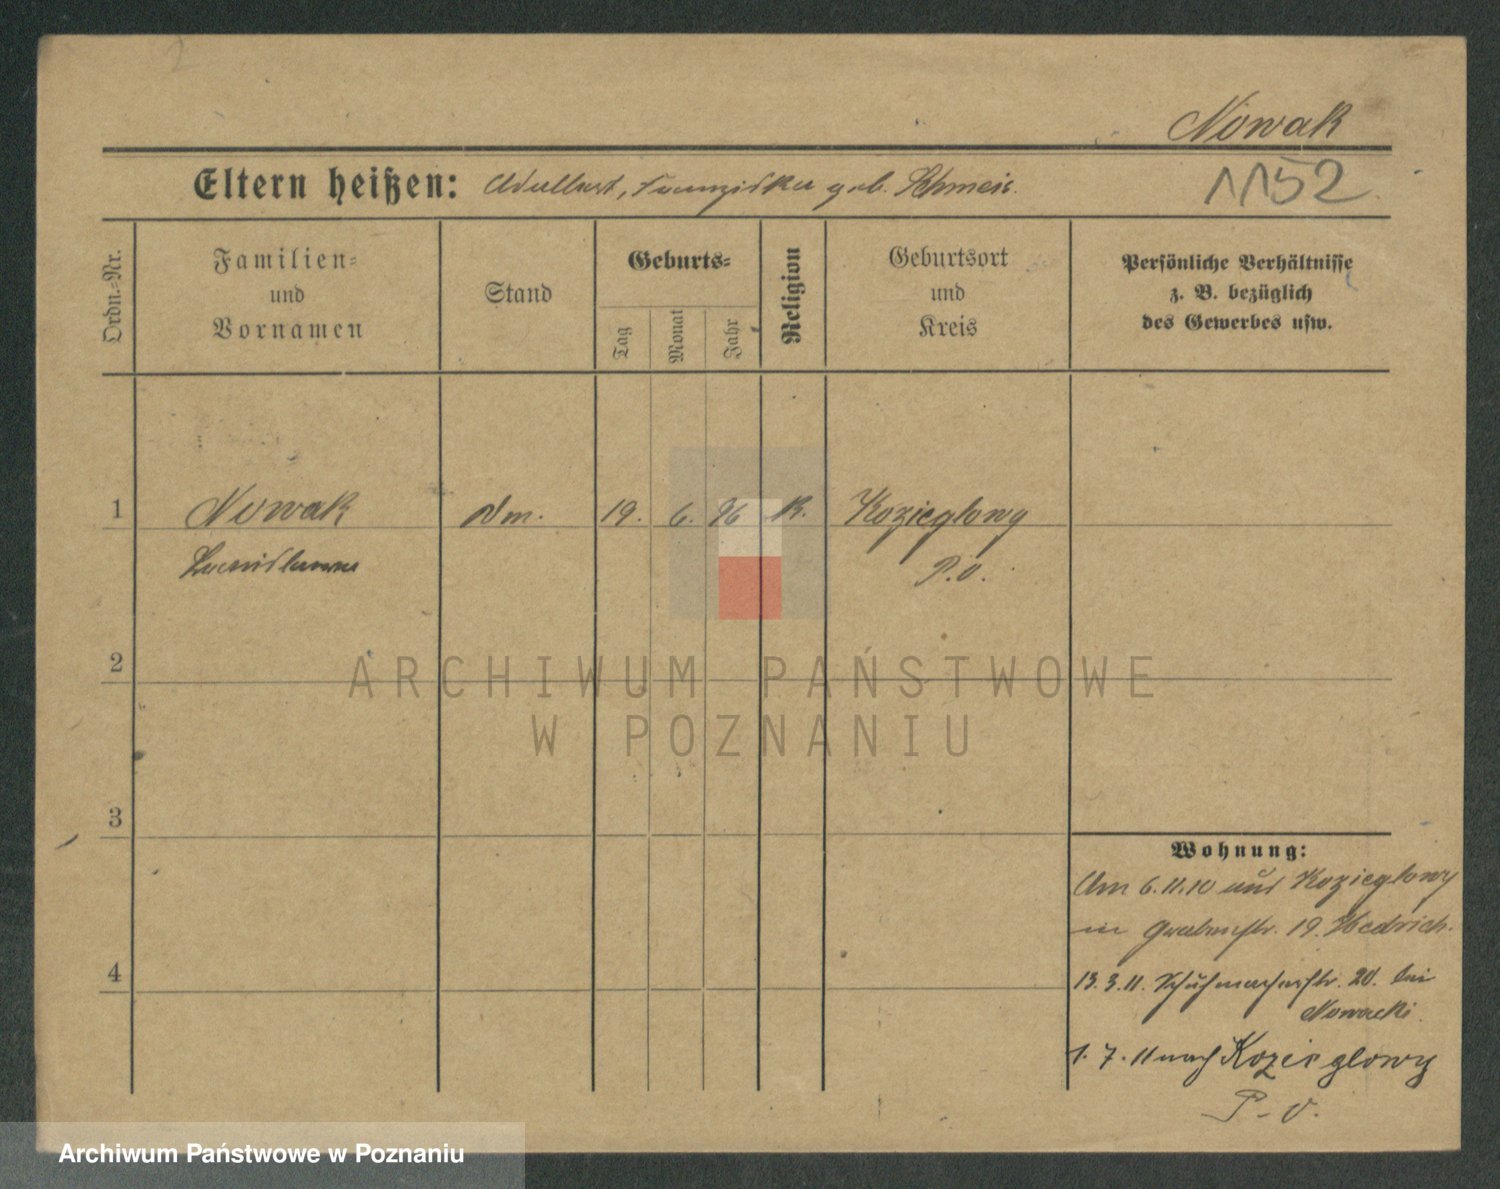 Nowak
Eltern heißen: Adalbert, Franziska geb. Schmeis.
1152
Ordn.-Nr.
Familien-
und
Vornamen
Stand
Geburts-
Tag
Monat
Jahr
Religion
Geburtsort
und
Kreis
Persönliche Verhältnisse
z. B. bezüglich
des Gewerbes usw.
1 Nowak Dm. 19. 6. 96 K. Kozieglowy
P.O.
2
ARCHIWUM PAŃSTWOWE
W POZNANIU
3
Wohnung:
Am 6.11.10 aus Kozieglowy
in Grabenstr. 19. Hedrich.
4
13.3.11. Schuhmacherstr. 20. bei
Nowacki.
1.7.11 nach Kozieglowy
P-O.
Archiwum Państwowe w Poznaniu